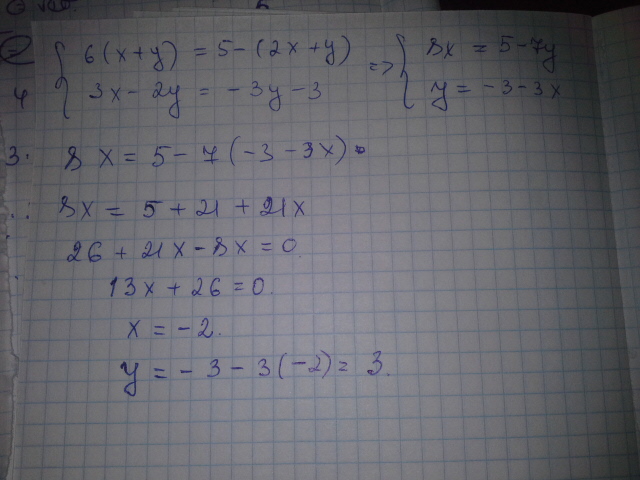 6(x+y) = 5-(2x+y) => 8x = 5-7y
3x-2y = -3y-3 y = -3-3x
3. 8x = 5-7(-3-3x)
8x = 5+21+21x
26+21x-8x=0.
13x+26=0.
x=-2.
y=-3-3(-2)=3.